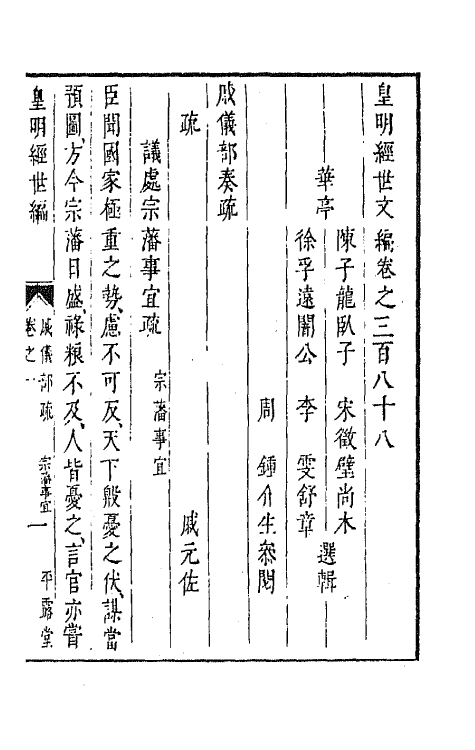 皇明經世文編卷之三百八十八
華亭
陳子龍臥子　宋徵璧尚木
徐孚遠闇公　李　雯舒章
選輯
周　鍾介生叅閱
戚儀部奏疏
疏　戚元佐
議處宗藩事宜疏　宗藩事宜
臣聞國家極重之勢、慮不可反、天下殷憂之伏、謀當
預圖、方今宗藩日盛、祿粮不及、人皆憂之、言官亦嘗
皇明經世編　戚儀部疏　卷之　宗藩事宜　一　平露堂